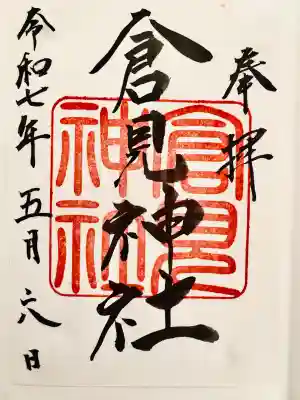 奉拝
倉見神社
令和七年五月六日
倉見
神社